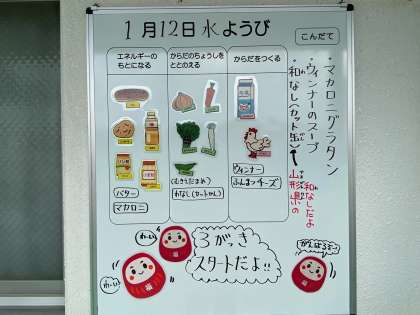 1月12日水ようび
こんだて
エネルギーの
もとになる
からだのちょうしを
ととのえる
からだをつくる
バター
マカロニ
(むきえだまめ)
わなし(カットかん)
ウィンナー
ふんまつチーズ
・マカロニグラタン
・ウィンナーのスープ
・和なし(カット缶)
山形県の
和なしだよ
3がっき
スタートだよ!!
わーい
わーい
がんばるぞー